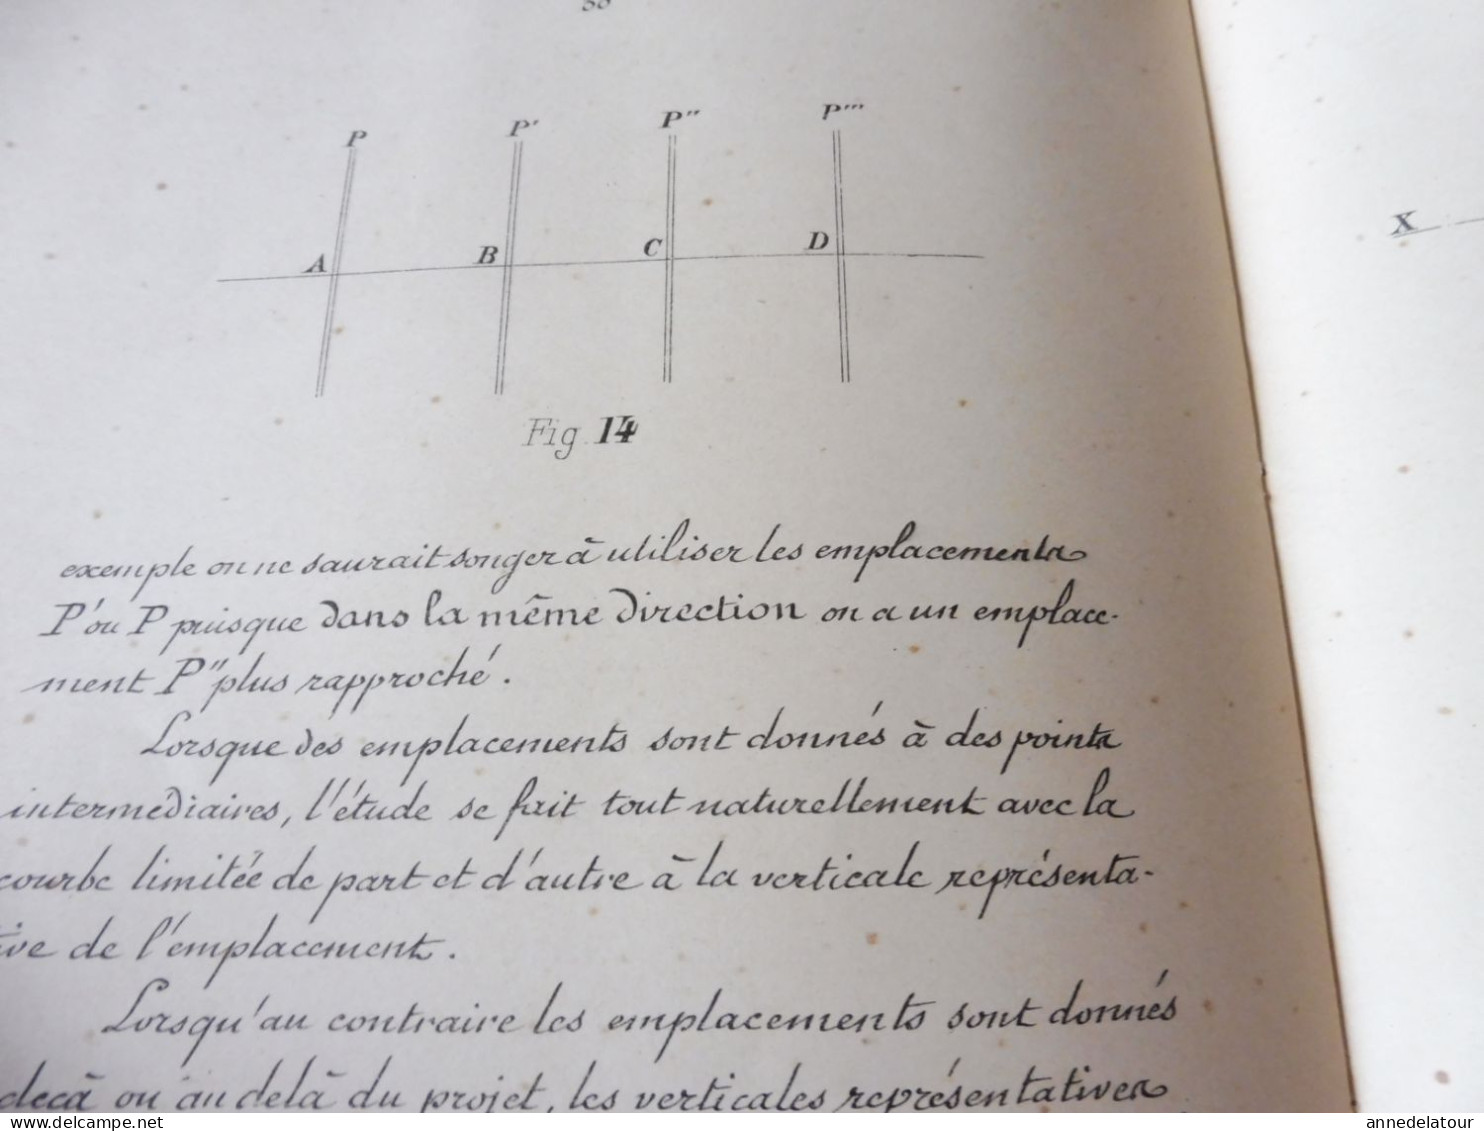 P P' P'' P'''
A B C D
X
Fig. 14
exemple on ne saurait songer à utiliser les emplacements
P' ou P puisque dans la même direction on a un emplace-
ment P'' plus rapproché.
Lorsque des emplacements sont donnés à des points
intermédiaires, l'étude se fait tout naturellement avec la
courbe limitée de part et d'autre à la verticale représenta-
tive de l'emplacement.
Lorsqu'au contraire les emplacements sont donnés
deçà ou au delà du projet, les verticales représentatives
delcampe.net
annedelatour